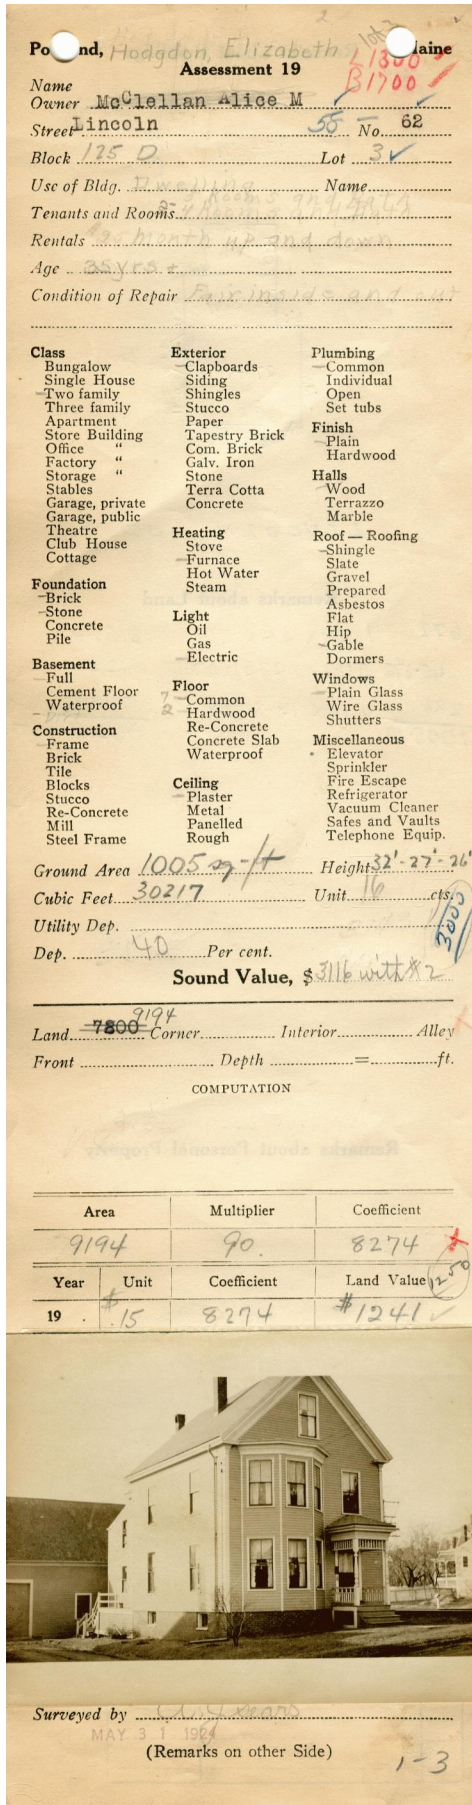 Hodgdon, Elizabeth lot 3
Po nd, aine
L1300
Assessment 19
B1700
Name
Owner McClellan Alice M
Street Lincoln 55 - No. 62
Block 125 D Lot 3 ✓
Use of Bldg. Dwelling Name
Tenants and Rooms 2-
Rentals month up and down
Age 35 yrs +
Condition of Repair Fair inside and out
Class
Bungalow
Single House
Two family
Three family
Apartment
Store Building
Office "
Factory "
Storage "
Stables
Garage, private
Garage, public
Theatre
Club House
Cottage
Foundation
Brick
Stone
Concrete
Pile
Basement
Full
Cement Floor
Waterproof
Construction
Frame
Brick
Tile
Blocks
Stucco
Re-Concrete
Mill
Steel Frame
Exterior
Clapboards
Siding
Shingles
Stucco
Paper
Tapestry Brick
Com. Brick
Galv. Iron
Stone
Terra Cotta
Concrete
Heating
Stove
Furnace
Hot Water
Steam
Light
Oil
Gas
Electric
Floor
7 Common
2 Hardwood
Re-Concrete
Concrete Slab
Waterproof
Ceiling
Plaster
Metal
Panelled
Rough
Plumbing
Common
Individual
Open
Set tubs
Finish
Plain
Hardwood
Halls
Wood
Terrazzo
Marble
Roof — Roofing
Shingle
Slate
Gravel
Prepared
Asbestos
Flat
Hip
Gable
Dormers
Windows
Plain Glass
Wire Glass
Shutters
Miscellaneous
Elevator
Sprinkler
Fire Escape
Refrigerator
Vacuum Cleaner
Safes and Vaults
Telephone Equip.
Ground Area 1005 sq-ft Height 32'-27'-26'
Cubic Feet 30217 Unit 16 cts.
3000
Utility Dep.
Dep. 40 Per cent.
Sound Value, $ 3116 with #2
9194
Land 7800 Corner Interior Alley
Front Depth = ft.
COMPUTATION
Area Multiplier Coefficient
9194 90 8274
Year Unit Coefficient Land Value 1250
19 $ .15 8274 $1241 ✓
Surveyed by
MAY 31 1924
(Remarks on other Side)
1-3